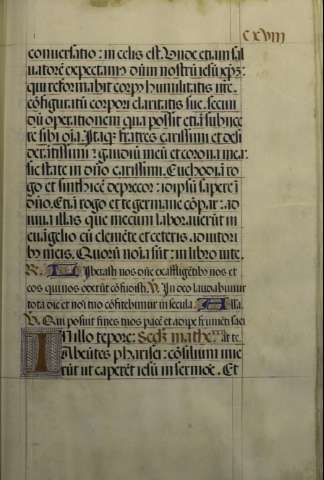 CXVIII
conversatio: in celis est. Unde etiam sal
uatorē expectam9 dūm nostrū iesū xp̄z:
qui reformabit corp9 humilitatis nr̄e.
cōfiguratū corpori claritatis sue. secun
dū operationem qua possit etiā subiice
re sibi oīa. Itaq3 fratres carissimi et desi
deratissimi: gaudiū meū et corona mea:
sic state in dn̄o carissimi. Euchodiā ro
go et sinthicē deprecor: idipsū sapere ī
dn̄o. Etiā rogo et te germane cōpar: ad
iuua illas que mecum laborauerūt in
euāgelio cū clemēte et ceteris adiutori
b9 meis. Quorū noīa sūt in libro vite.
R. Liberasti nos dn̄e ex affligētib9 nos et
eos qui nos oderūt cōfudisti. V. In deo laudabimur
tota die et noī tuo cōfitebimur in secula. Alla.
V. Qui posuit fines tuos pacē et adipe frumēti saci
In illo tēpore: Secd3 matheū. At te.
Abeūtes pharisei: cōsilium inie
rūt ut caperēt iesū in sermōe. Et